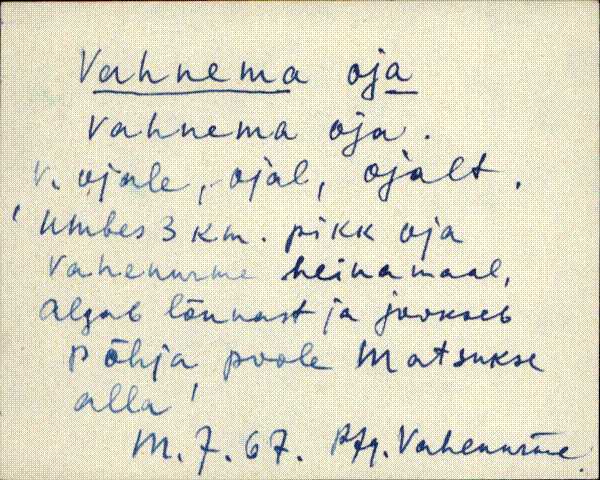 Vahnema oja
Vahnema oja.
V. ojale, ojal, ojalt.
'Umbes 3 km. pikk oja
Vahenurme heinamaal,
algab lõunast ja jookseb
põhja poole Matsukse
alla'
M. 7. 67. Vahenurme.